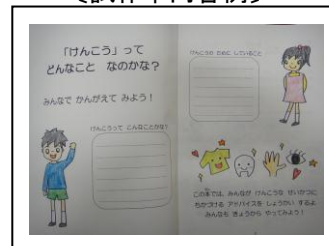 「けんこう」って
どんなこと なのかな？
みんなで かんがえて みよう！
けんこうって どんなことかな？
けんこうの ために していること
この本では、みんなが けんこうな せいかつに
ちかづける アドバイスを しょうかい するよ
みんなも きょうから やってみよう！